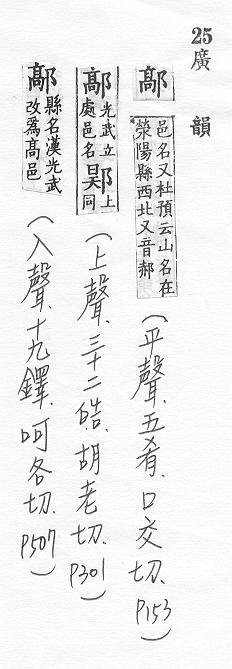 25廣 韻
鄗 邑名又杜預云山名在滎陽縣西北又音郝 (平聲.五肴.口交切.P153)
鄗 光武立處邑名 昊 鄗 上同 (上聲.三十二皓.胡老切.P301)
鄗 縣名漢光武改爲高邑 (入聲.十九鐸.呵各切.P507)